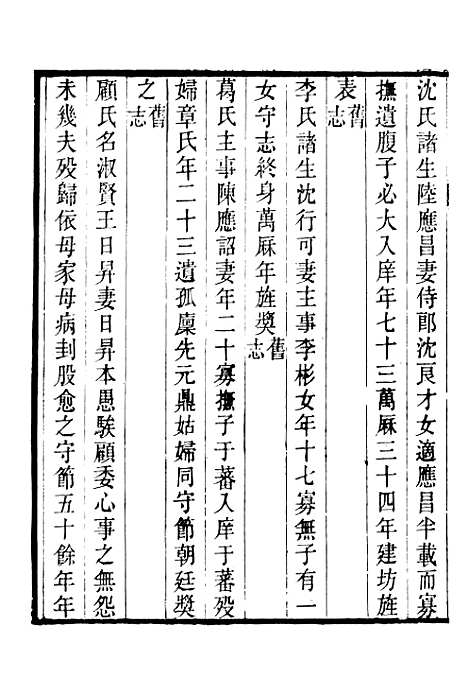 沈氏諸生陸應昌妻侍郎沈良才女適應昌半載而寡
撫遺腹子必大入庠年七十三萬厤三十四年建坊旌
表舊志
李氏諸生沈行可妻主事李彬女年十七寡無子有一
女守志終身萬厤年旌獎舊志
葛氏主事陳應詔妻年二十寡撫子于蕃入庠于蕃歿
婦章氏年二十三遺孤廩先元鼎姑婦同守節朝廷獎
之舊志
顧氏名淑賢王日昇妻日昇本愚騃顧委心事之無怨
未幾夫歿歸依母家母病刲股愈之守節五十餘年年